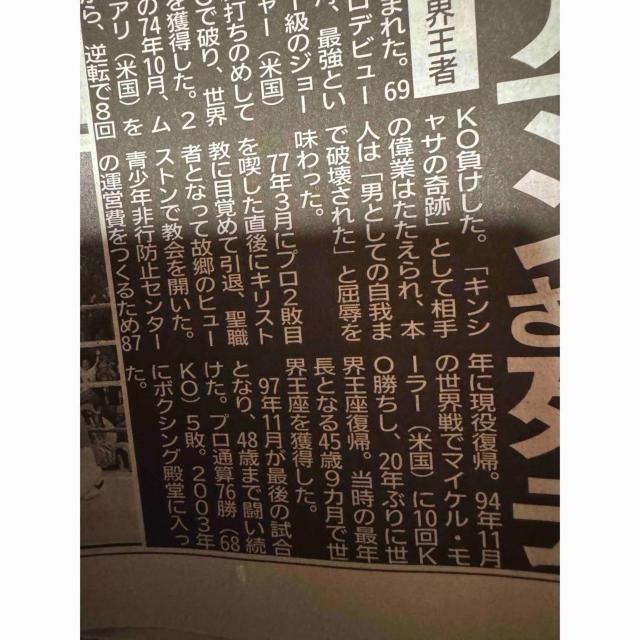 界王者
まれた。69
ロデビュー
、最強とい
ー級のジョー
ャー（米国）
打ちのめして
Oで破り、世界
を獲得した。2
の74年10月、ム
アリ（米国）を
ら、逆転で8回
KO負けした。「キンシ
ャサの奇跡」として相手
の偉業はたたえられ、本
人は「男としての自我ま
で破壊された」と屈辱を
味わった。
77年3月にプロ2敗目
を喫した直後にキリスト
教に目覚めて引退、聖職
者となって故郷のヒュー
ストンで教会を開いた。
青少年非行防止センター
の運営費をつくるため87
年に現役復帰。94年11月
の世界戦でマイケル・モ
ーラー（米国）に10回K
O勝ちし、20年ぶりに世
界王座復帰。当時の最年
長となる45歳9カ月で世
界王座を獲得した。
97年11月が最後の試合
となり、48歳まで闘い続
けた。プロ通算76勝（68
KO）5敗。2003年
にボクシング殿堂に入っ
た。